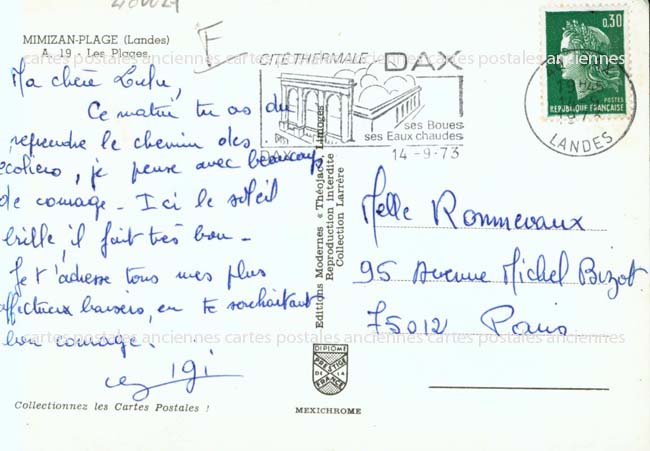 400029
E
MIMIZAN-PLAGE (Landes)
A. 19 - Les Plages
Ma chère Lulu,
Ce matin tu as du
reprendre le chemin des
écoliers, je pense avec beaucoup
de courage - Ici le soleil
brille, il fait très bon -
Je t'adresse tous mes plus
affectueux baisers, en te souhaitant
bon courage.
Gigi
Collectionnez les Cartes Postales !
CITÉ THERMALE DAX
ses Boues
ses Eaux chaudes
DAX 14-9-73
0,30
POSTES
REPUBLIQUE FRANÇAISE
LANDES
Editions Modernes « Théojac », Limoges
Reproduction interdite
Collection Larrère
DIPLOME
PRESTIGE
DE LA
FRANCE
MEXICHROME
Melle Rommevaux
95 Avenue Michel Bizot
75012 Paris
cartes postales anciennes cartes postales anciennes cartes postales anciennes
cartes postales anciennes cartes postales anciennes cartes postales anciennes